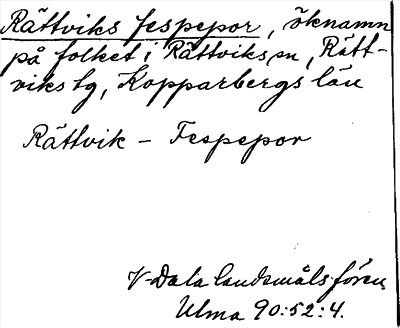 Rättviks fespepor, öknamn
på folket i Rättviks sn, Rätt-
viks tg, Kopparbergs län
Rättvik – Fespepor
V-Dala landsmålsfören.
Ulma 90:52:4.